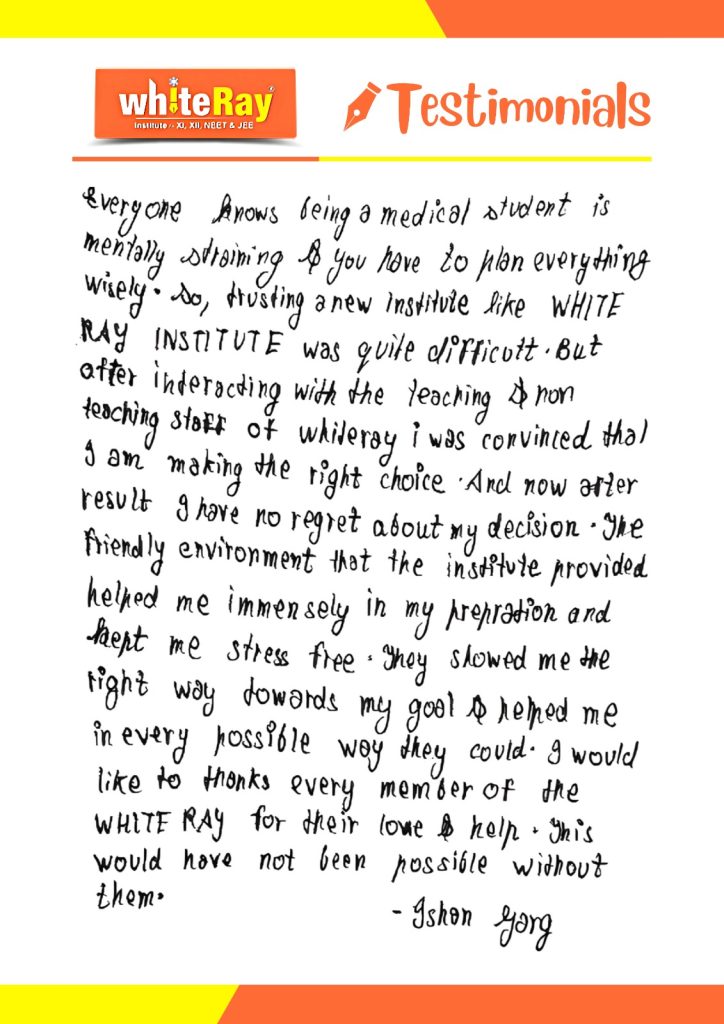 whiteRay
Institute :- XI, XII, NEET & JEE
Testimonials
Everyone knows being a medical student is
mentally straining & you have to plan everything
wisely. So, trusting a new institute like WHITE
RAY INSTITUTE was quite difficult. But
after interacting with the teaching & non
teaching staff of whiteray i was convinced that
I am making the right choice. And now after
result I have no regret about my decision. The
friendly environment that the institute provided
helped me immensely in my prepration and
kept me stress free. They showed me the
right way towards my goal & helped me
in every possible way they could. I would
like to thanks every member of the
WHITE RAY for their love & help. This
would have not been possible without
them.
- Ishan Garg